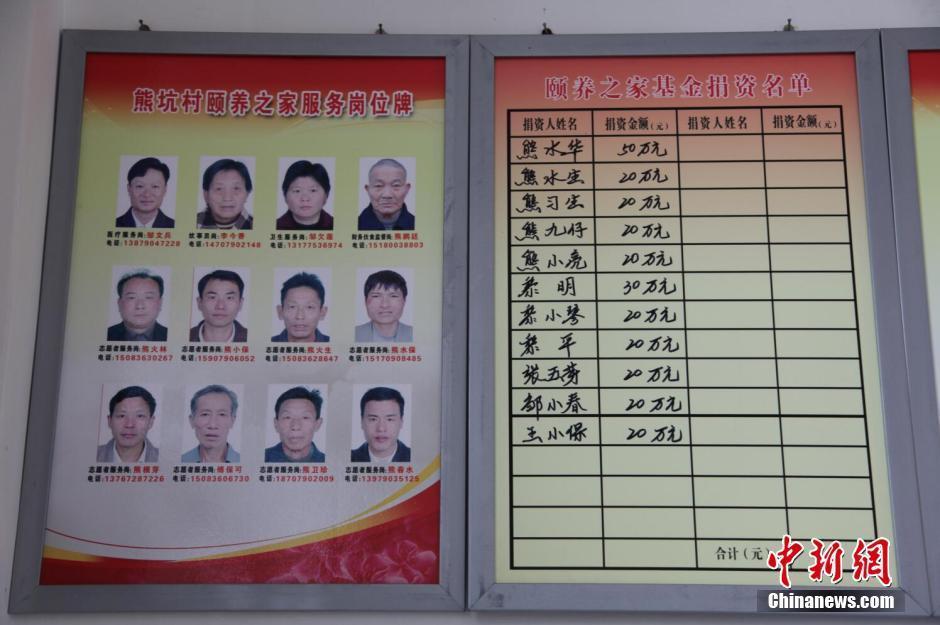 熊坑村颐养之家服务岗位牌
医疗服务岗:邹文兵
电话:13879047228
炊事员岗:李今香
电话:14707902148
卫生服务岗:邹欠莲
电话:13177536974
财务伙食监督岗:熊鹏廷
电话:15180038803
志愿者服务岗:熊火林
电话:15083630267
志愿者服务岗:熊小保
电话:15907906052
志愿者服务岗:熊火生
电话:15083628647
志愿者服务岗:熊水保
电话:15170908485
志愿者服务岗:熊根芽
电话:13767287226
志愿者服务岗:傅保可
电话:15083606730
志愿者服务岗:熊卫珍
电话:18707902009
志愿者服务岗:熊春水
电话:13979035125
颐养之家基金捐资名单
捐资人姓名 捐资金额(元) 捐资人姓名 捐资金额(元)
熊水华 50万元
熊水生 20万元
熊习生 20万元
熊九仔 20万元
熊小亮 20万元
黎明 30万元
黎小琴 20万元
黎平 20万元
张五芽 20万元
邹小春 20万元
王小保 20万元
合计(元)
中新网
Chinanews.com